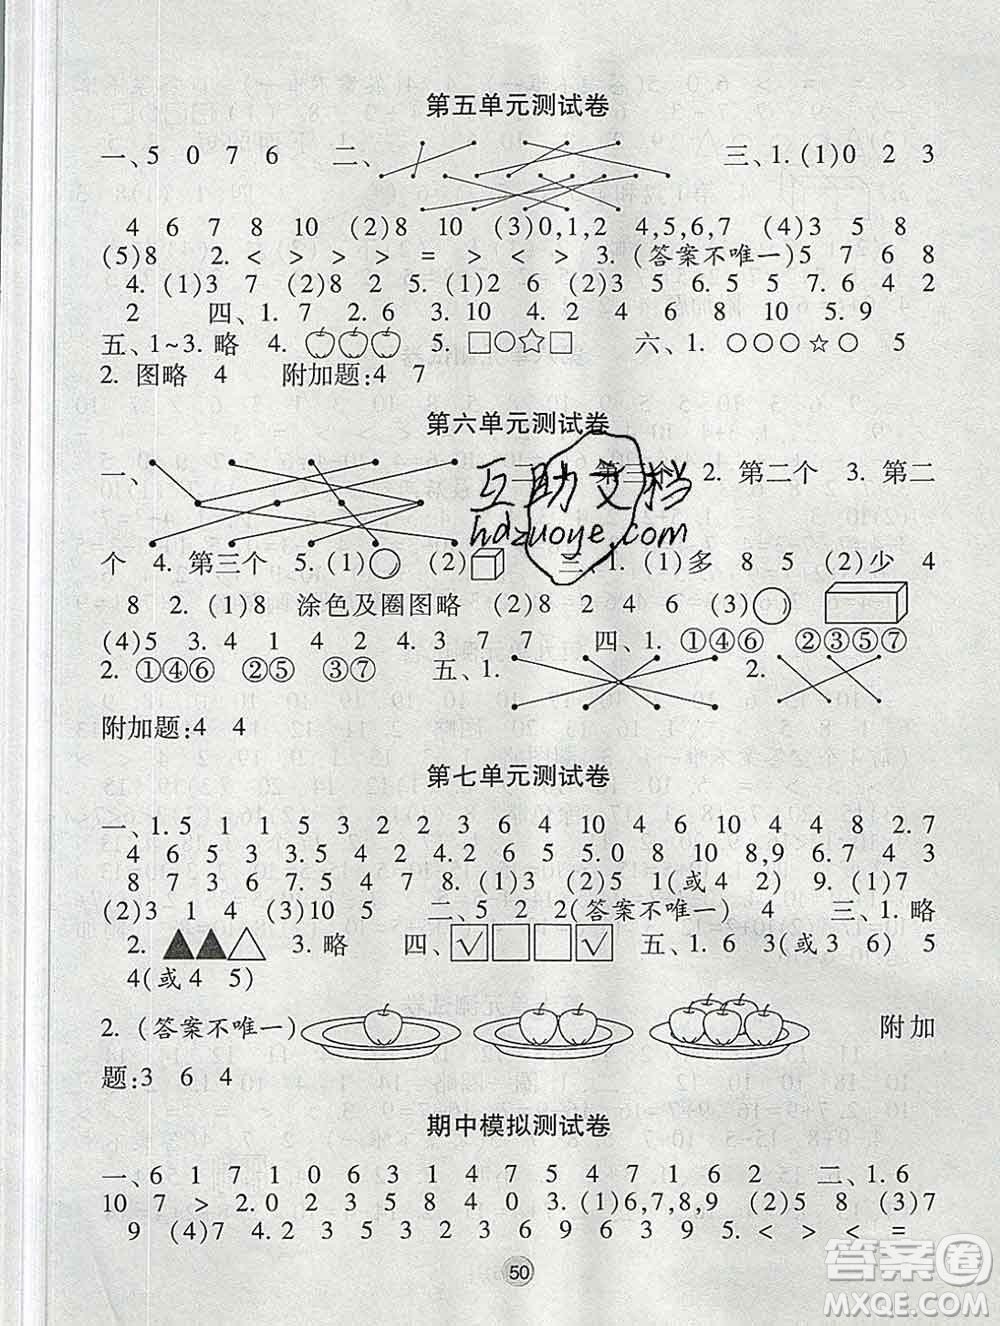 第五单元测试卷
一、5 0 7 6 二、 三、1. (1)0 2 3
4 6 7 8 10 (2)8 10 (3)0,1,2 4,5,6,7 (4)3 5 8
(5)8 2. < > > > = > < > 3. (答案不唯一)5 7 6 8
4. (1)3 7 (2)8 2 5 (1)2 6 (2)3 5 6. 5 5 7. 6 4 2
2 四、1. 7 2. 6 3. 10 4. 2 8 10 5. 9
五、1~3. 略 4. 5. □○☆□ 六、1. ○○○☆○ 5
2. 图略 4 附加题:4 7
第六单元测试卷
一、 第三个 2. 第二个 3. 第二
个 4. 第三个 5. (1)○ (2) 三、1. (1)多 8 5 (2)少 4
8 2. (1)8 涂色及圈图略 (2)8 2 4 6 (3)○
(4)5 3. 1 4 8 4. 4 3 7 7 四、1. ①④⑥ ②③⑤⑦
2. ①④⑥ ②⑤ ③⑦ 五、1. 2.
附加题:4 4
第七单元测试卷
一、1. 5 1 1 5 3 2 2 6 4 10 4 6 10 4 4 8 2. 7
4 6 5 3. 3 5 4. 2 6 5 5. 0 8 10 8,9 6. 7 4 3
8 7 3 6 7. 5 4 7 8. (1)3 (2)5 1(或4 2) 9. (1)7
(2)3 1 4 (3)10 5 二、5 2 2(答案不唯一) 4 三、1. 略
2. ▲▲△ 3. 略 四、☑□□☑ 五、1. 6 3(或3 6) 5
4(或4 5)
2. (答案不唯一) 附加
题:3 6 4
期中模拟测试卷
一、6 1 7 1 0 6 3 1 4 7 5 4 7 1 6 2 二、1. 6
10 7 > 2. 0 2 3 5 8 4 0 3. (1)6,7,8,9 (2)5 8 (3)7
9 (4)7 4. 2 3 5 3 2 3 6 9 6 3 9 5. < > < =
50
互助文档
hdzuoye.com
答案圈
MXQE.COM